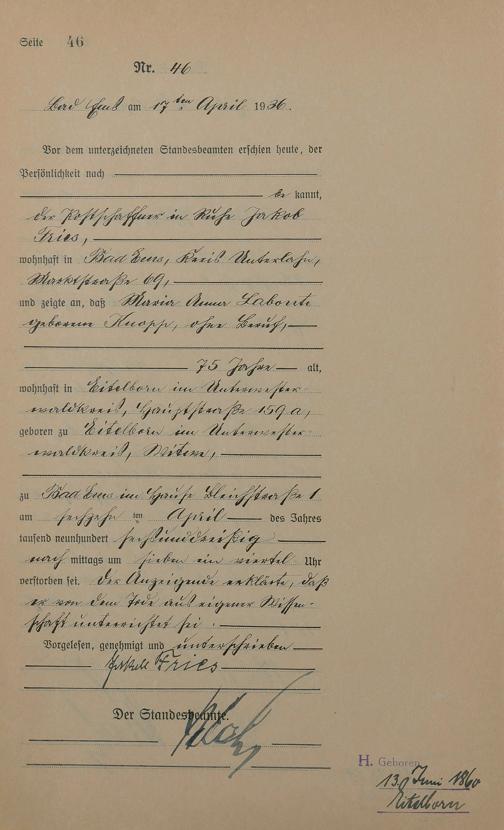 Seite 46
Nr. 46
Bad Ems am 17ten April 1936.
Vor dem unterzeichneten Standesbeamten erschien heute, der
Persönlichkeit nach
bekannt,
der Postschaffner in Ruhe Jakob
Fries,
wohnhaft in Bad Ems, Kreis Unterlahn,
Marktstraße 69,
und zeigte an, daß Maria Anna Labonte
geborene Knopp, ohne Beruf,
75 Jahre alt,
wohnhaft in Eitelborn im Unterwester-
waldkreis, Hauptstraße 159a,
geboren zu Eitelborn im Unterwester-
waldkreis, Witwe,
zu Bad Ems im Hause Bleichstraße 1
am sechzehnten April des Jahres
tausend neunhundert sechsunddreißig
nachmittags um sieben ein viertel Uhr
verstorben sei. Der Anzeigende erklärte, daß
er von dem Tode aus eigener Wissen-
schaft unterrichtet sei.
Vorgelesen, genehmigt und unterschrieben
Fries
Der Standesbeamte.
H. Geboren
13. Juni 1860
Eitelborn